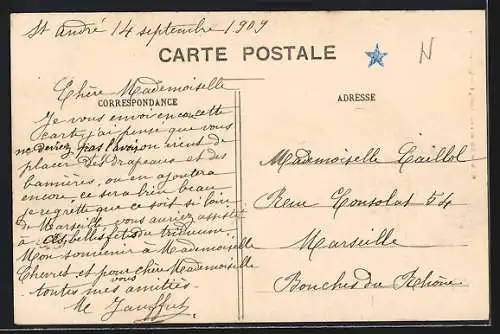 St André 14 septembre 1909
CARTE POSTALE
N
Chère Mademoiselle
CORRESPONDANCE
ADRESSE
Je vous envoi encore cette
carte, j'ai pensé que vous
ne deviez pas l'avoir on vient de
placer des drapeaux et des
bannières, on en ajoutera
encore, ce sera bien beau
je regrette que ce soit si loin
de Marseille, vous auriez assisté
à ces belles fêtes du triduum
Mon souvenir à Mademoiselle
Chevret et pour chère Mademoiselle
vous
toutes mes amitiés
Me Jauffret
Mademoiselle Caillol
Rue Consolat 54
Marseille
Bouches du Rhône